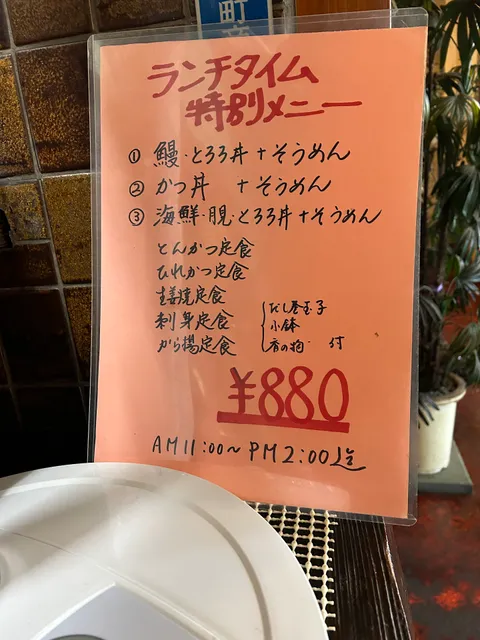 町
ランチタイム
特別メニー
① 鰻・とろろ丼+そうめん
② かつ丼 +そうめん
③ 海鮮・月見・とろろ丼+そうめん
とんかつ定食
ひれかつ定食
生姜焼定食
刺身定食
から揚定食
だし巻玉子
小鉢
香の物 付
¥880
AM11:00~PM2:00迄